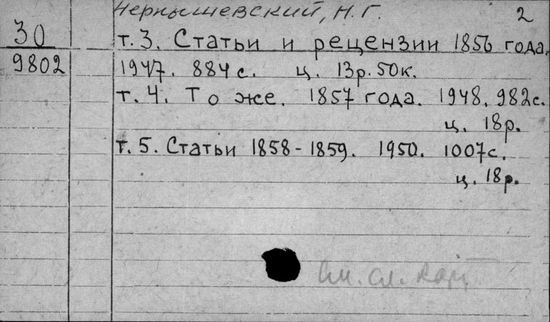 Чернышевский, Н. Г. 2
30
9802
т. 3. Статьи и рецензии 1856 года.
1947. 884 с. ц. 13р. 50к.
т. 4. То же. 1857 года. 1948. 982с.
ц. 18р.
т. 5. Статьи 1858-1859. 1950. 1007с.
ц. 18р.
см. сл. карт